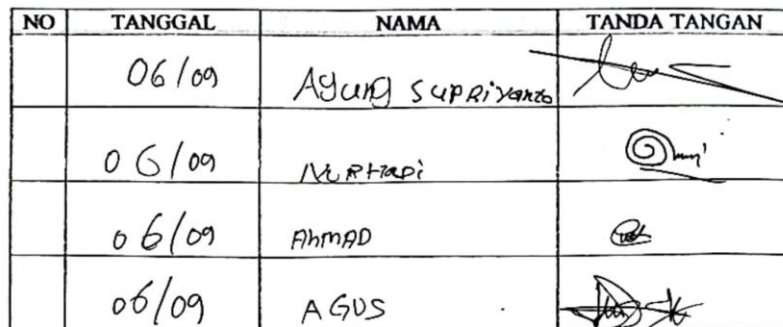 NO TANGGAL NAMA TANDA TANGAN
06/09 Agung Supriyanto
06/09 NURHADi
06/09 AhmAD
06/09 AGUS